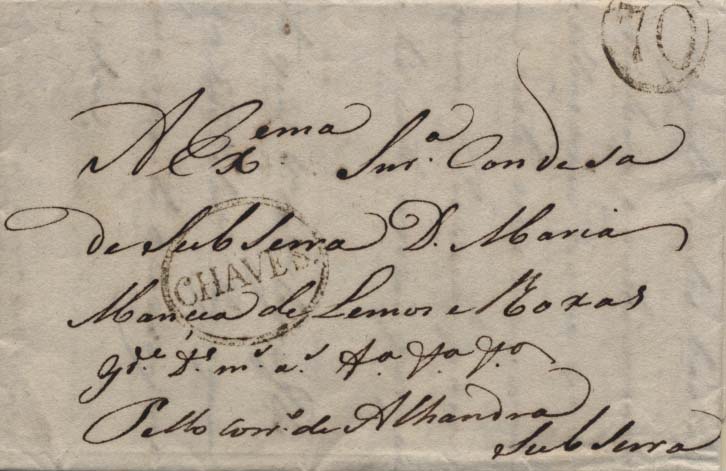 70
A Ex.ema Snr.a Condesa
de Subserra D. Maria
CHAVES.
Mancia de Lemos e Roxas
g.de D.s m.s a.s
Pello corr.o de Alhandra
Subserra